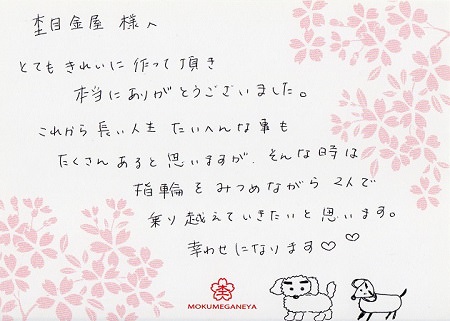 杢目金屋 様へ
とてもきれいに作って頂き
本当にありがとうございました。
これから長い人生 たいへんな事も
たくさんあると思いますが、そんな時は
指輪をみつめながら 2人で
乗り越えていきたいと思います。
幸わせになります♡♡
MOKUMEGANEYA